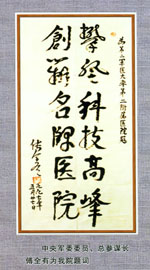 为第二军医大学第二附属医院题
攀登科技高峰
创籍名牌医院
傅全有
一九九七年
中央军委委员、总参谋长
傅全有为我院题词